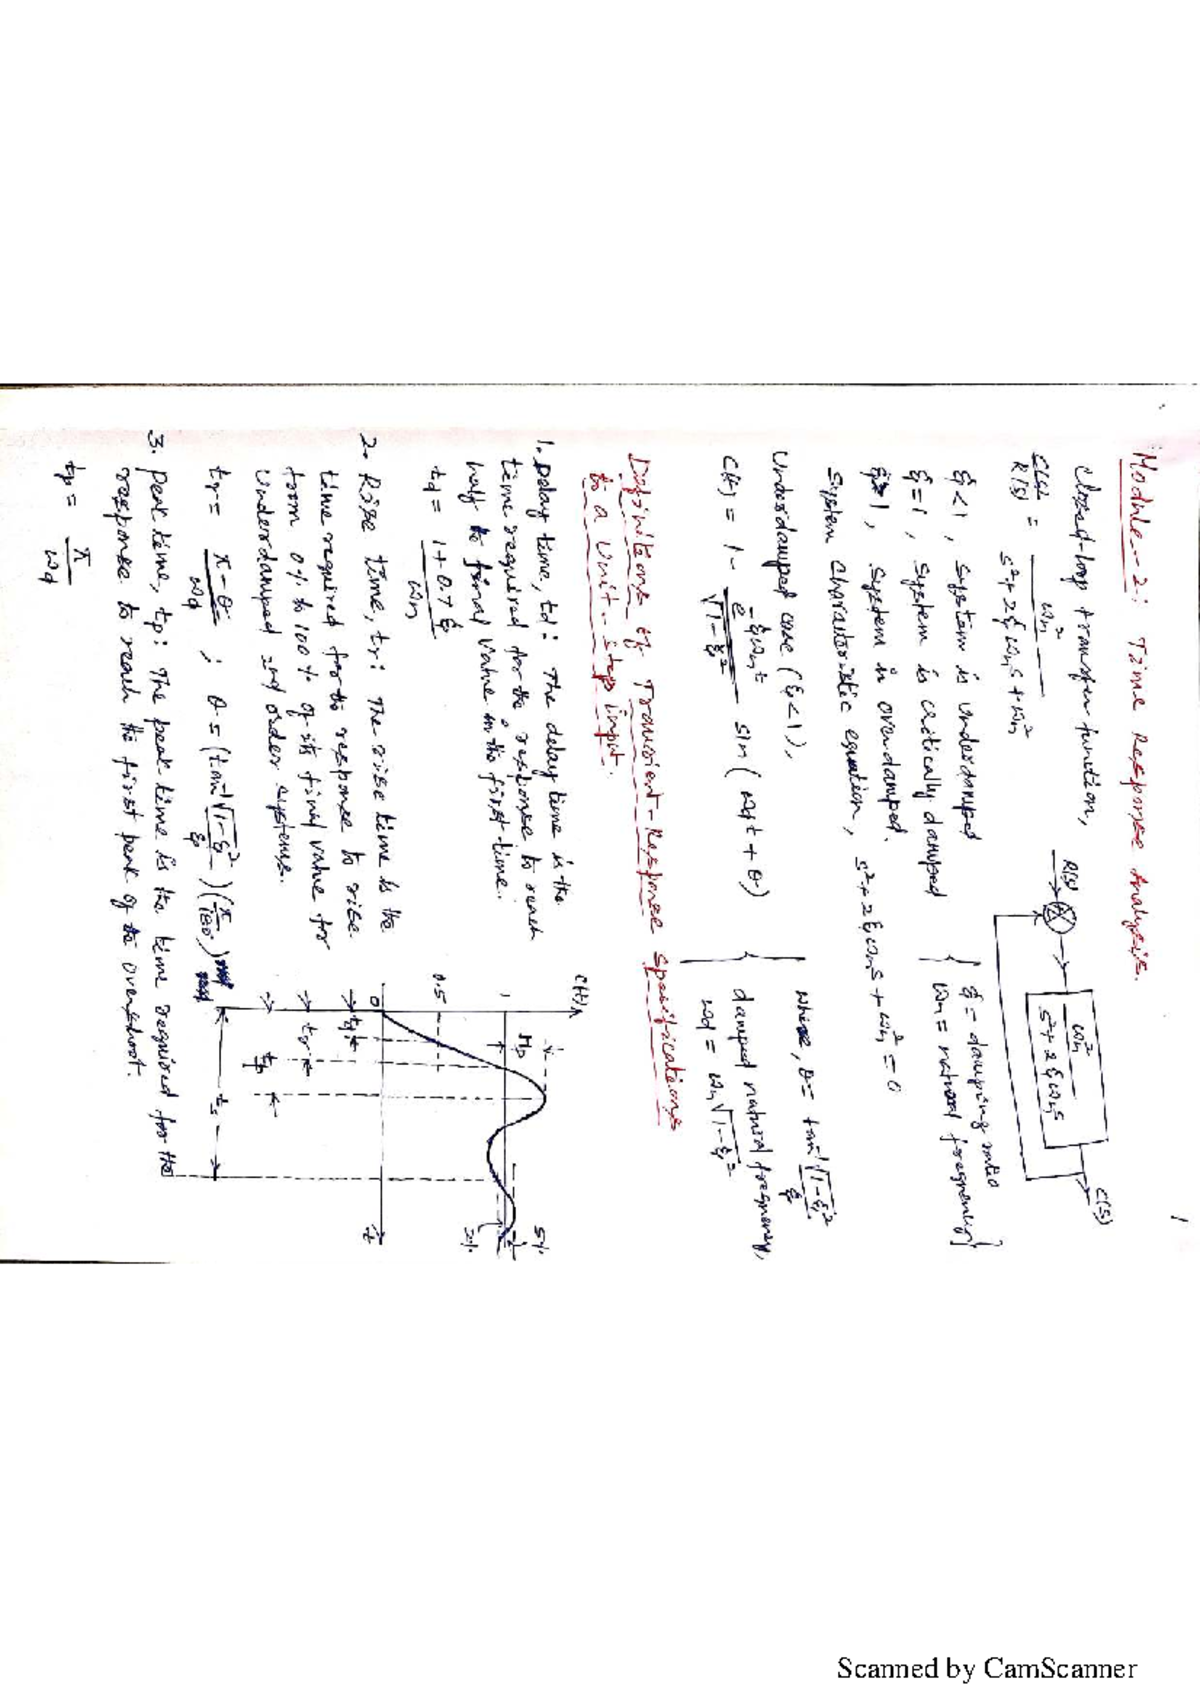 1
Module-2: Time Response Analysis.
Closed-loop transfer function,
C(s)/R(s) = ωn² / (s² + 2ξωn s + ωn²)
R(s)
ωn² / (s² + 2ξωn s)
C(s)
ξ<1, system is underdamped
ξ=1, system is critically damped
ξ>1, system is overdamped.
{ ξ = damping ratio
ωn = natural frequency }
System Characteristic equation, s² + 2ξωn s + ωn² = 0
Underdamped case (ξ<1),
C(t) = 1 - e^(-ξωn t) / √(1-ξ²) sin(ωd t + θ)
{ where, θ = tan⁻¹ √(1-ξ²)/ξ
damped natural frequency,
ωd = ωn √(1-ξ²)
Definitions of Transient-Response specifications
to a Unit-step input.
1. Delay time, td: The delay time is the
time required for the response to reach
half the final value in the first time.
td = (1 + 0.7ξ) / ωn
2. Rise time, tr: The rise time is the
time required for the response to rise
from 0% to 100% of its final value for
underdamped 2nd order systems.
tr = (π - θ) / ωd ; θ = (tan⁻¹ √(1-ξ²)/ξ) (π/180)
C(t)
Mp
5%
1
2%
0.5
0
t
td
tr
tp
ts
3. Peak time, tp: The peak time is the time required for the
response to reach the first peak of the overshoot.
tp = π / ωd
Scanned by CamScanner